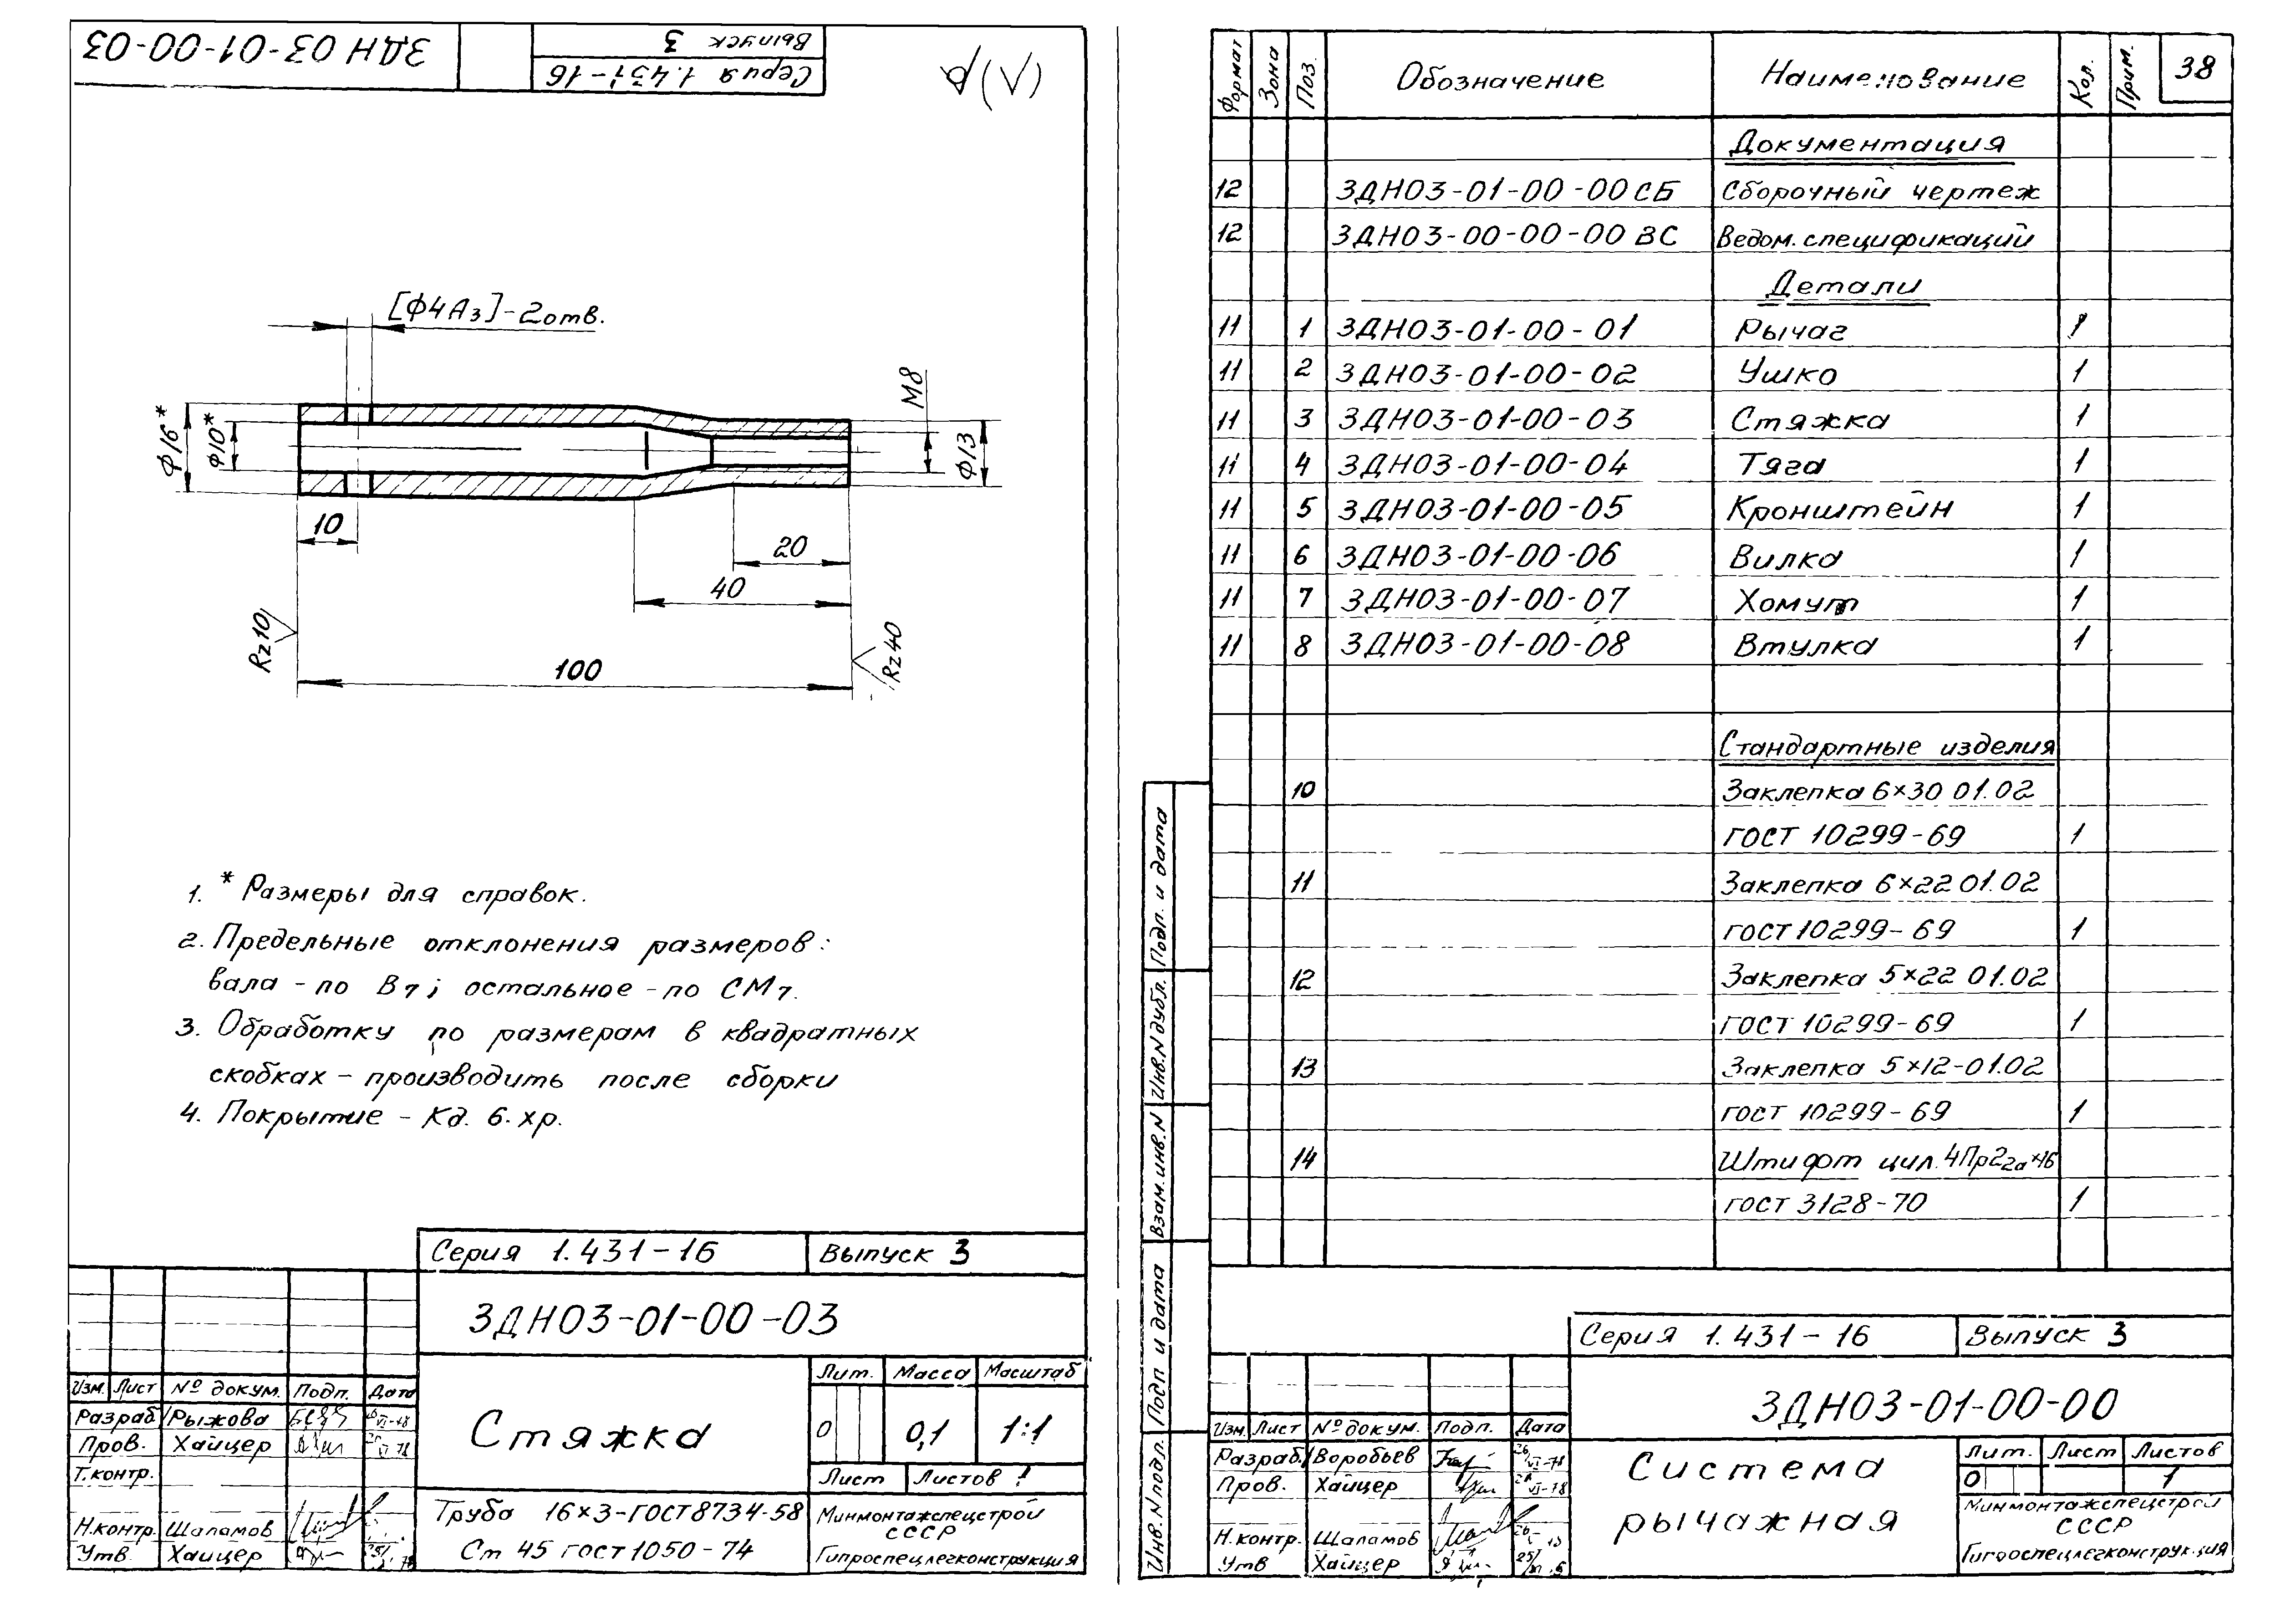 ЗДН 03-01-00-03
Выпуск 3
Серия 1.431-16
(√)
[Ф4А3]-2отв.
Ф16*
Ф10*
М8
Ф13
10
20
40
Rz10
Rz40
100
1. * Размеры для справок.
2. Предельные отклонения размеров:
вала - по В7; остальное - по СМ7.
3. Обработку по размерам в квадратных
скобках - производить после сборки
4. Покрытие - Кд. 6. хр.
Серия 1.431-16 Выпуск 3
ЗДН03-01-00-03
Изм. Лист № докум. Подп. Дата
Разраб Рыжова
Пров. Хайцер
Т.контр.
Н.контр. Шаламов
Утв. Хайцер
Стяжка
Лит. Масса Масштаб
О 0,1 1:1
Лист Листов 1
Труба 16×3-ГОСТ8734-58
Ст 45 гост 1050-74
Минмонтажспецстрой
СССР
Гипроспецлегконструкция
Формат Зона Поз. Обозначение Наименование Кол. Прим. 38
Документация
12 ЗДН03-01-00-00СБ Сборочный чертеж
12 ЗДН03-00-00-00 ВС Ведом. спецификаций
Детали
11 1 ЗДН03-01-00-01 Рычаг 1
11 2 ЗДН03-01-00-02 Ушко 1
11 3 ЗДН03-01-00-03 Стяжка 1
11 4 ЗДН03-01-00-04 Тяга 1
11 5 ЗДН03-01-00-05 Кронштейн 1
11 6 ЗДН03-01-00-06 Вилка 1
11 7 ЗДН03-01-00-07 Хомут 1
11 8 ЗДН03-01-00-08 Втулка 1
Стандартные изделия
10 Заклепка 6×30 01.02
ГОСТ 10299-69 1
11 Заклепка 6×22 01.02
ГОСТ 10299-69 1
12 Заклепка 5×22 01.02
ГОСТ 10299-69 1
13 Заклепка 5×12-01.02
ГОСТ 10299-69 1
14 Штифт цил. 4Пр22а×16
ГОСТ 3128-70 1
Подп. и дата
Инв.N дубл.
Взам.инв.N
Подп и дата
Инв.N подл.
Серия 1.431-16 Выпуск 3
ЗДН03-01-00-00
Изм. Лист № докум. Подп. Дата
Разраб. Воробьев
Пров. Хайцер
Н.контр. Шаламов
Утв Хайцер
Система
рычажная
Лит. Лист Листов
О 1
Минмонтажспецстрой
СССР
Гипроспецлегконструкция